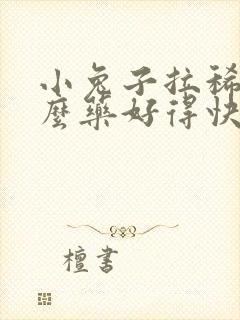 小兔子拉稀
麼藥好得快
檀書